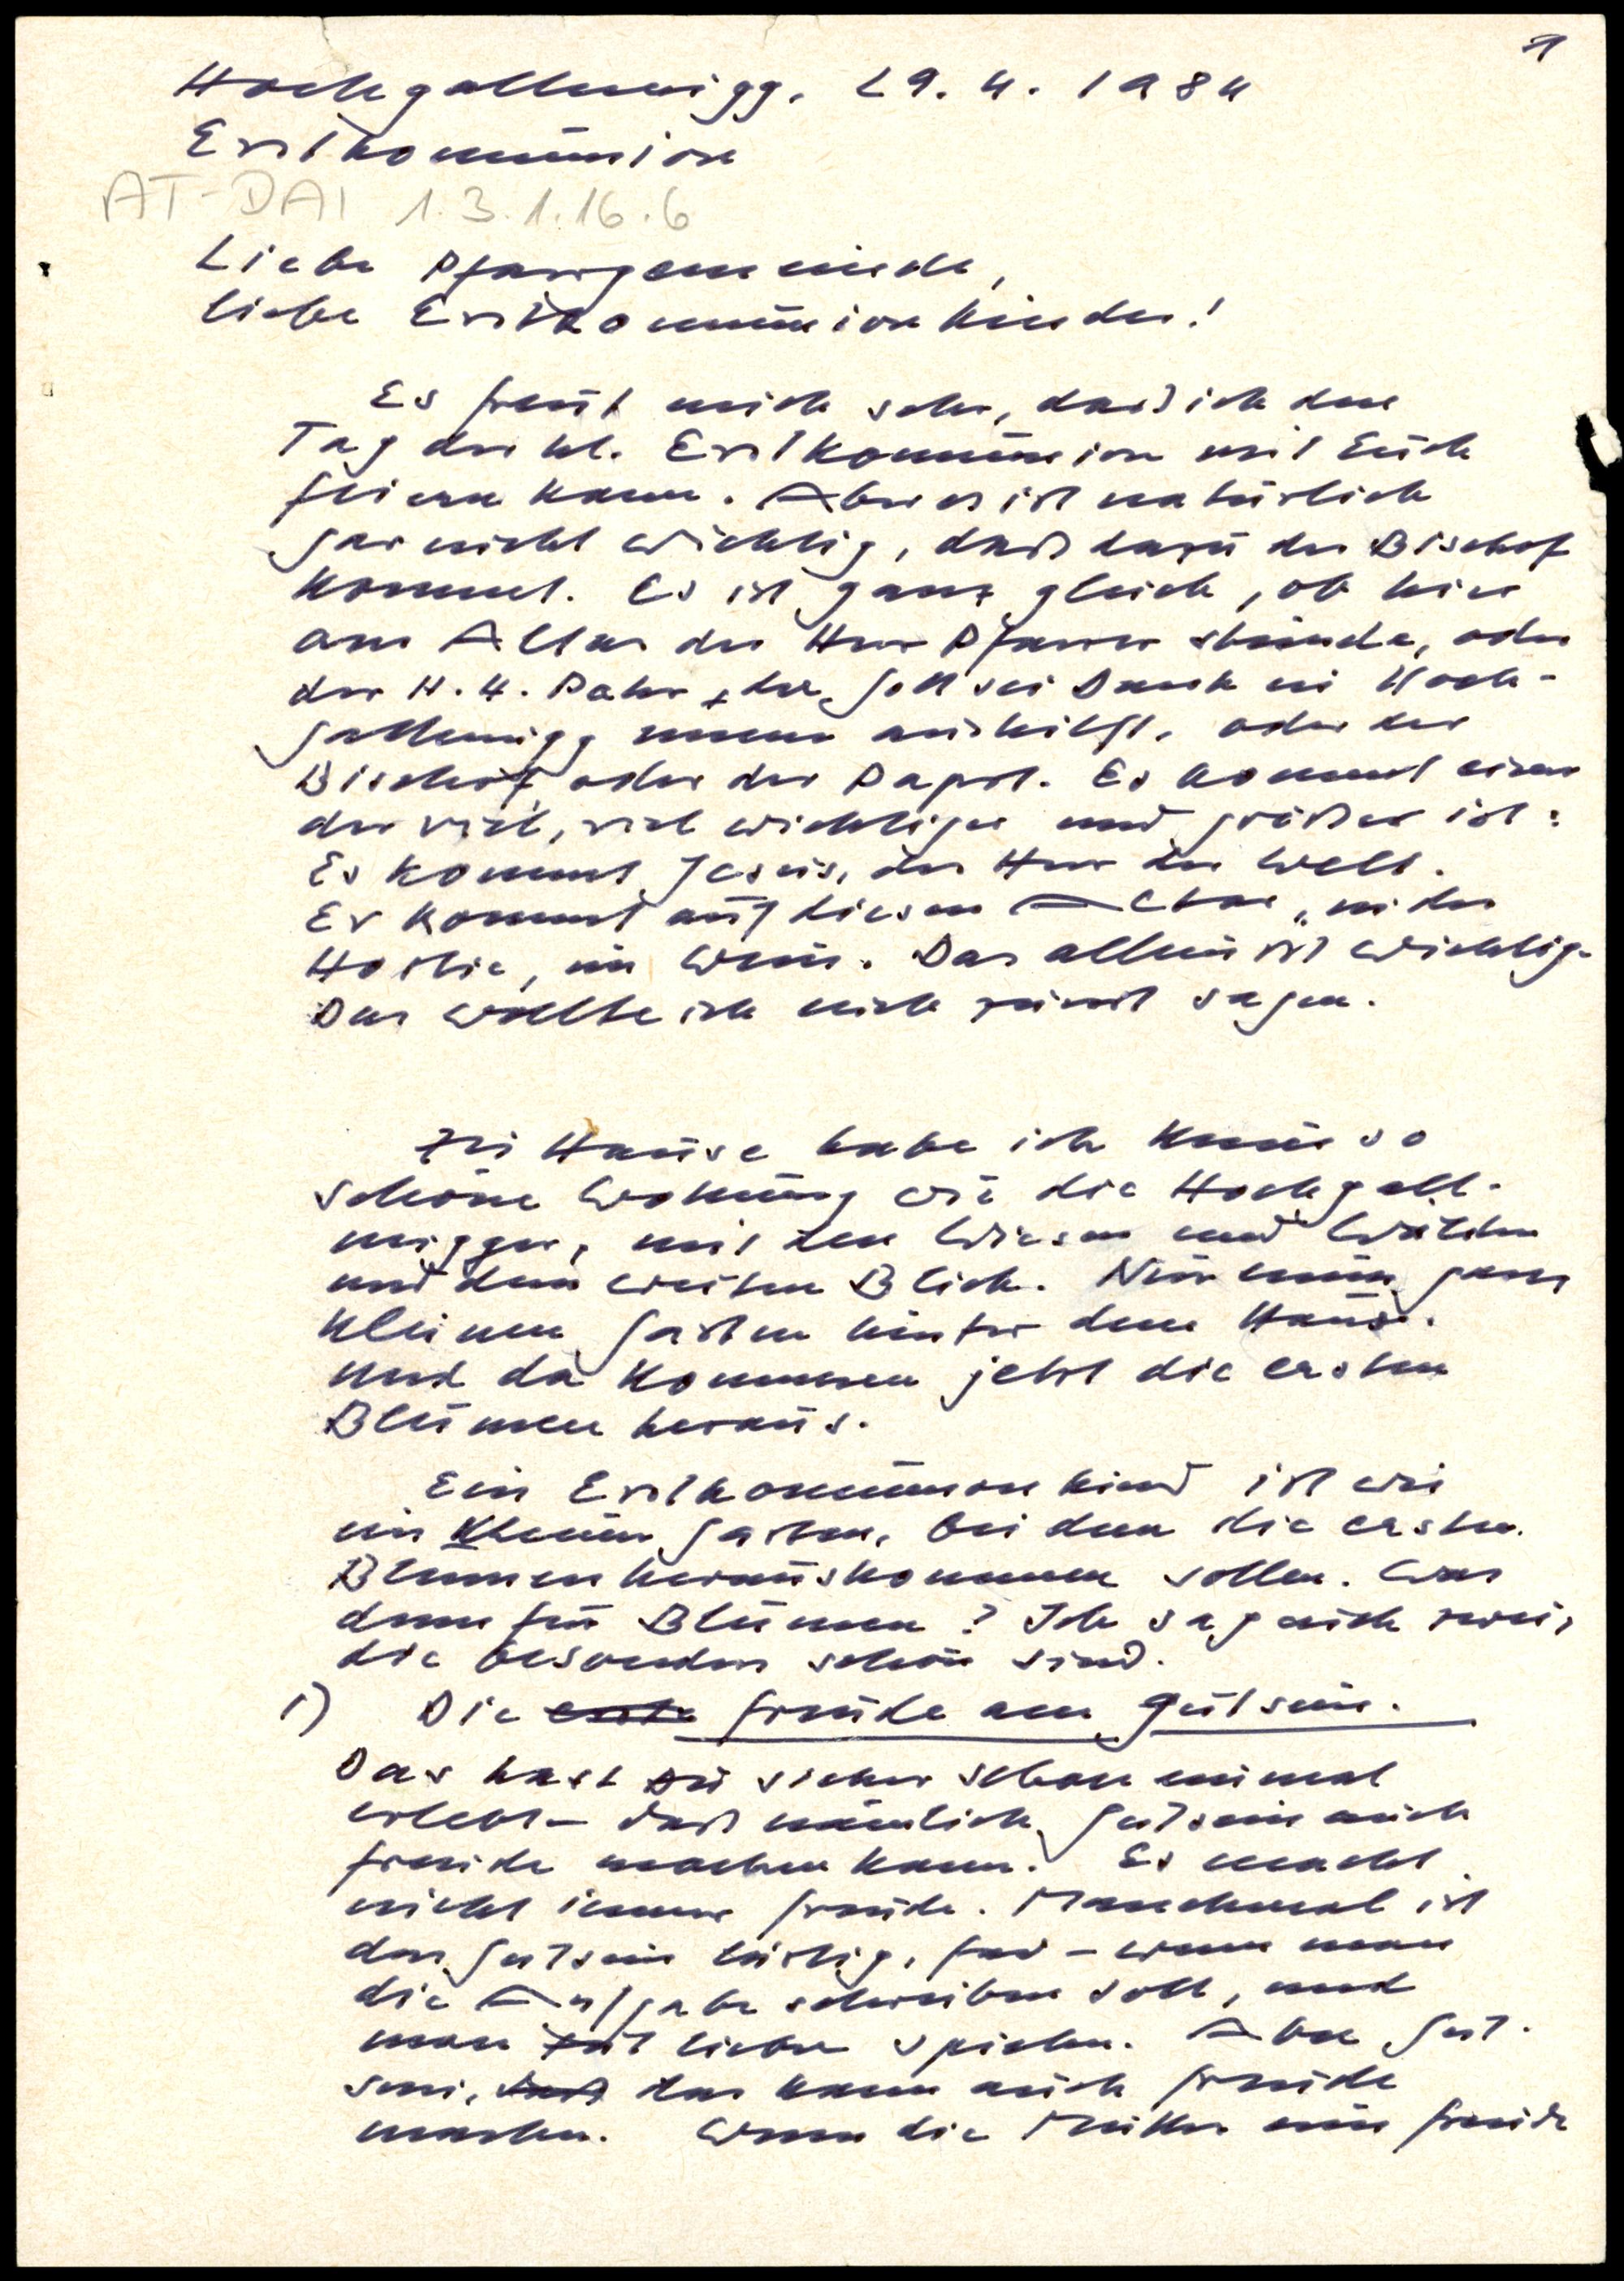 1
Hochgallmigg, 29. 4. 1984
Erstkommunion
AT-DAI 1.3.1.16.6
Liebe Pfarrgemeinde,
liebe Erstkommunionkinder!
Es freut mich sehr, daß ich den
Tag der hl. Erstkommunion mit Euch
feiern kann. Aber es ist natürlich
gar nicht wichtig, daß dazu der Bischof
kommt. Es ist ganz gleich, ob hier
am Altar der Herr Pfarrer stünde, oder
der H. H. Pater, der Gott sei Dank in Hoch-
gallmigg immer aushilft, oder der
Bischof oder der Papst. Es kommt einer
der viel, viel wichtiger und größer ist:
Es kommt Jesus, der Herr der Welt.
Er kommt auf diesen Altar, in der
Hostie, im Wein. Das allein ist wichtig.
Das wollte ich euch zuerst sagen.
Zu Hause habe ich keine so
schöne Wohnung wie die Hochgall-
migger, mit den Wiesen und Wäldern
und dem weiten Blick. Nur einen ganz
kleinen Garten hinter dem Haus.
Und da kommen jetzt die ersten
Blumen heraus.
Ein Erstkommunionkind ist wie
ein kleiner Garten, bei dem die ersten
Blumen herauskommen sollen. Was
denn für Blumen? Ich sag euch zwei,
die besonders schön sind.
1) Die erste Freude am Gutsein.
Das hast Du sicher schon einmal
erlebt - daß nämlich Gutsein auch
Freude machen kann. Es macht
nicht immer Freude. Manchmal ist
das Gutsein lästig, fad - wenn man
die Aufgabe schreiben soll, und
man tät lieber spielen. Aber Gut-
sein, daß das kann auch Freude
machen. Wenn die Mutter eine Freude